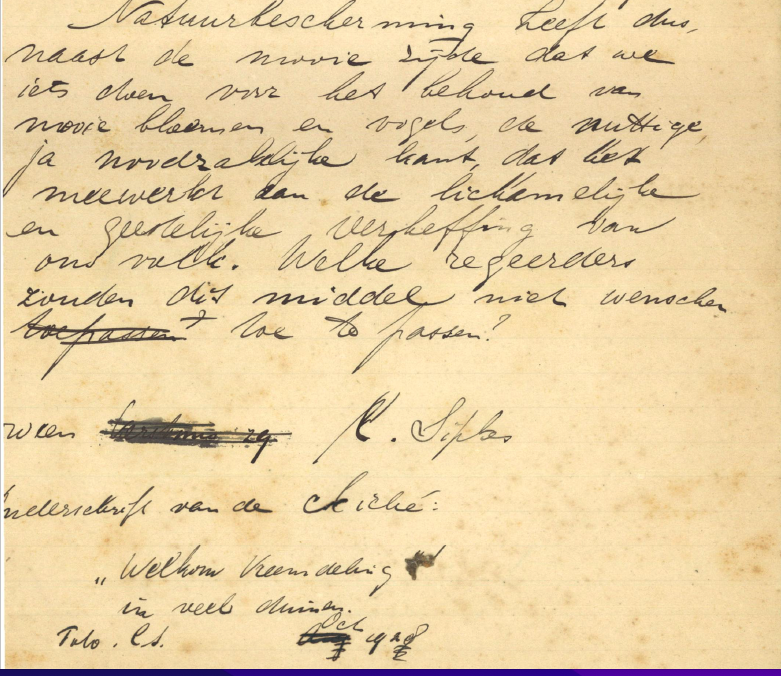 Natuurbescherming heeft dus,
naast de mooie zijde dat we
iets doen voor het behoud van
mooie bloemen en vogels, de nuttige,
ja noodzakelijke kant, dat het
meewerkt aan de lichamelijke
en geestelijke verheffing van
ons volk. Welke regeerders
zouden dit middel niet wenschen
toepassen? toe te passen?
K. Sipkes
onderschrift van de cliché:
„Welkom Vreemdeling"
in veel duinen.
Foto. C.S. Oct 1928